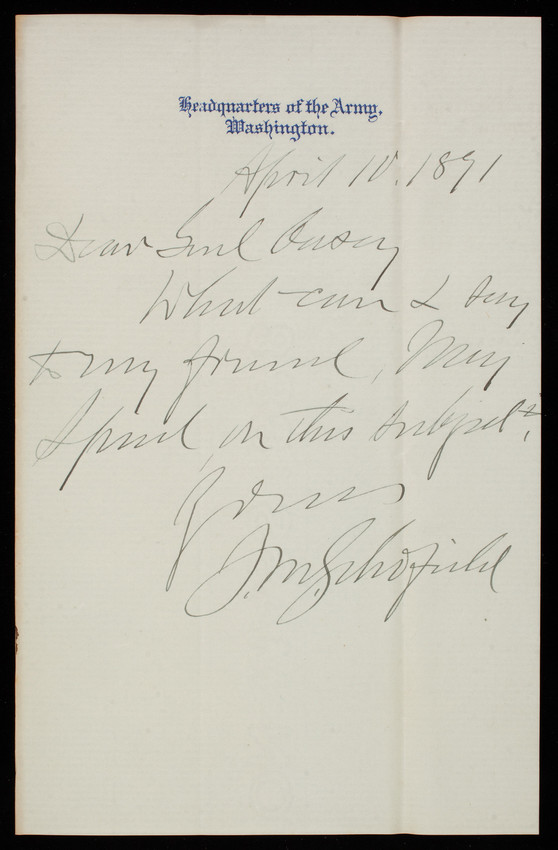 Headquarters of the Army,
Washington.
April 10. 1891
Dear Genl Casey
What can I say
to my friend, Maj
on this subject?
Yours
J.M. Schofield